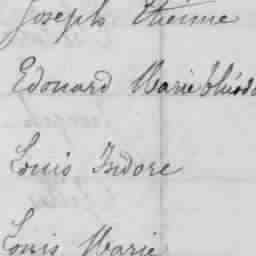 Joseph Etienne
Edouard Marie
Louis Isidore
Louis Marie